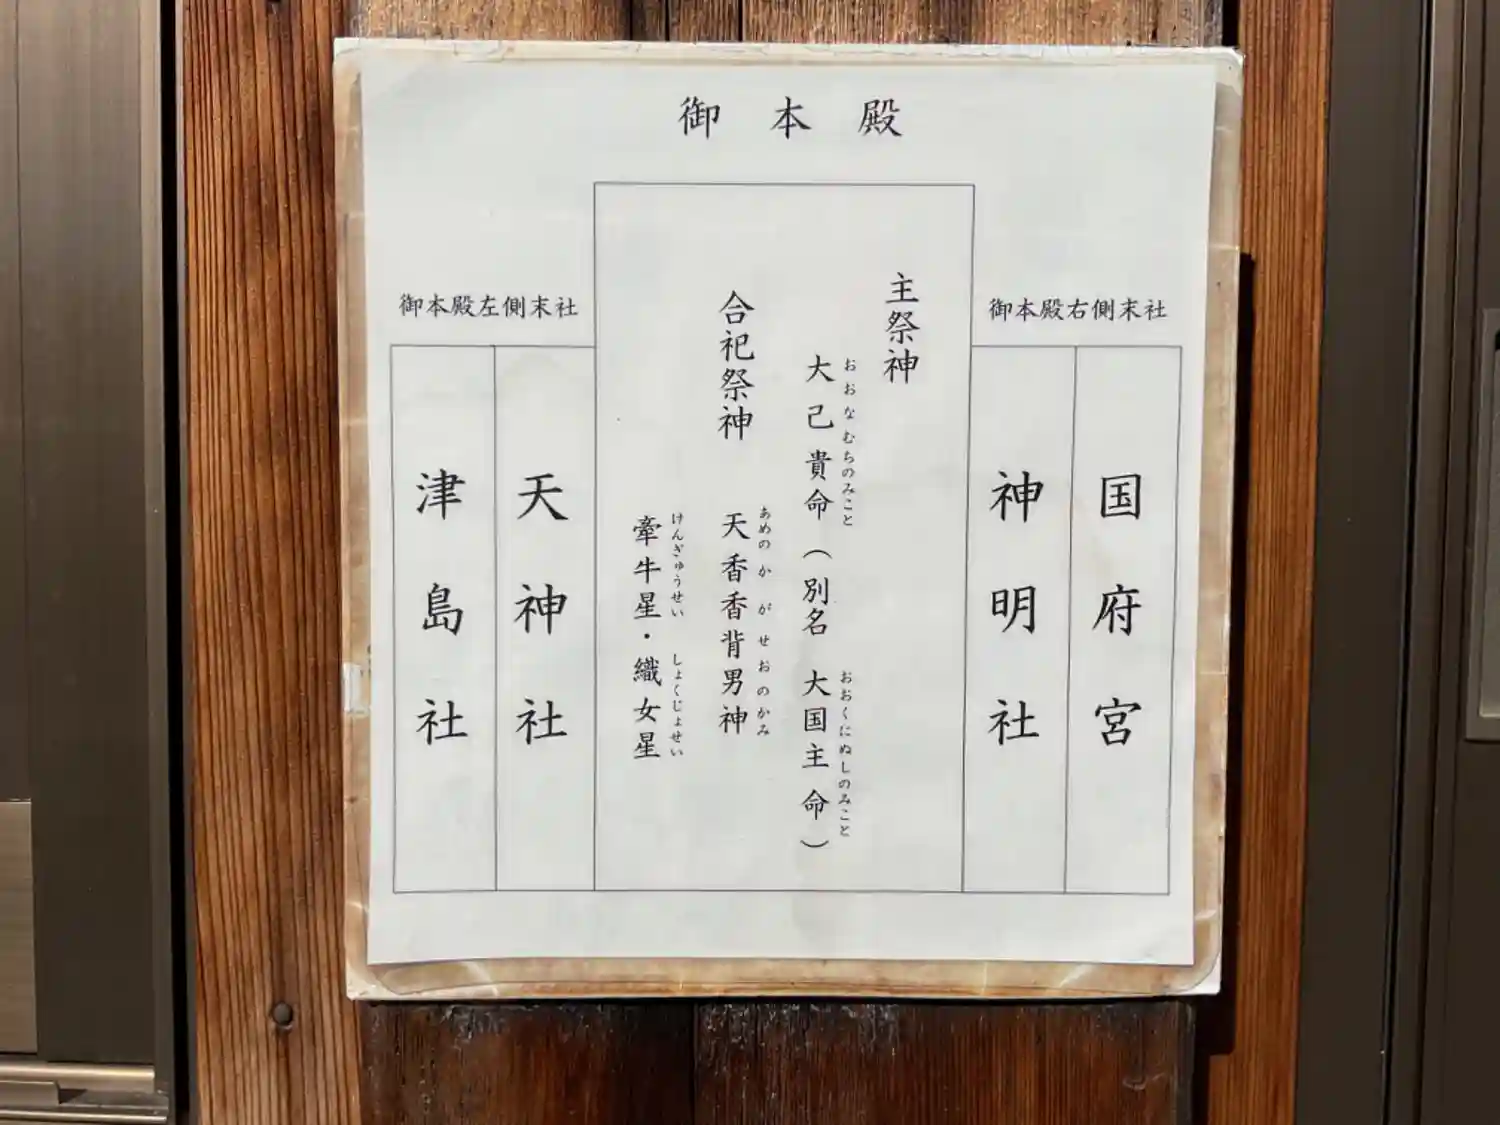 御本殿
御本殿右側末社
国府宮
神明社
主祭神
大己貴命（別名　大国主命）
おおなむちのみこと
おおくにぬしのみこと
合祀祭神
天香香背男神
あめのかがせおのかみ
牽牛星・織女星
けんぎゅうせい
しょくじょせい
御本殿左側末社
天神社
津島社